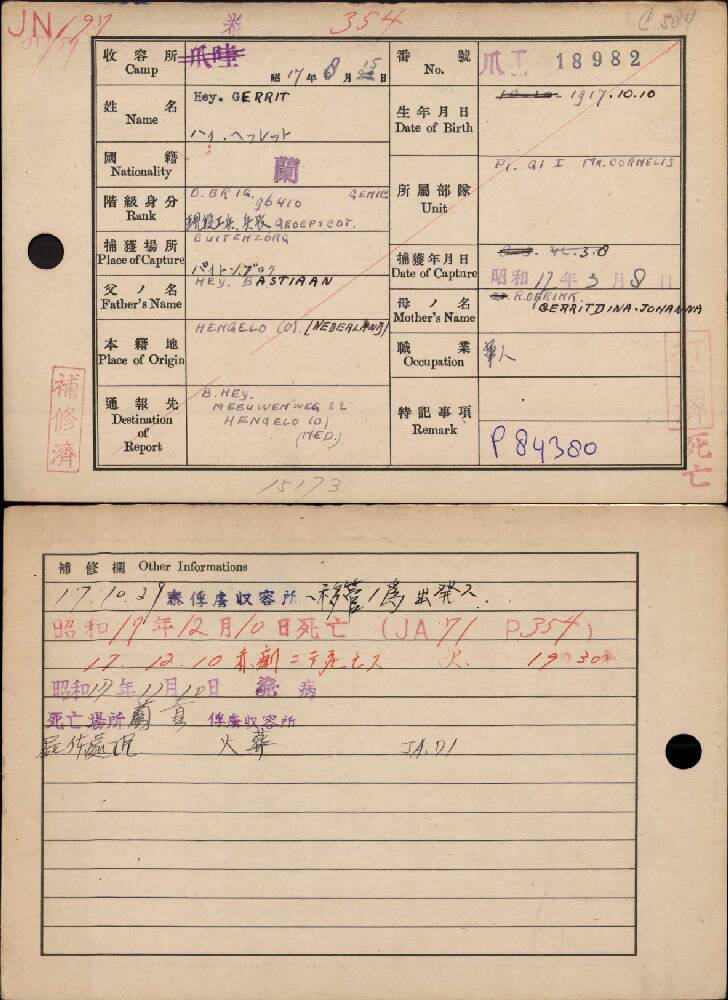 JN 197
泰
354
C.584
収容所 Camp
爪哇
昭17年8月15日
番號 No.
爪 I 18982
姓名 Name
Hey. GERRIT
ハイ.ヘフレット
生年月日 Date of Birth
1917.10.10
國籍 Nationality
蘭
階級身分 Rank
D. BRIG. 96410 GENIE
GROEPSCDT.
所屬部隊 Unit
MR. CORNELIS
捕獲場所 Place of Capture
BUITENZORG
捕獲年月日 Date of Capture
昭和17年3月8日
父ノ名 Father's Name
HEY. BASTIAAN
母ノ名 Mother's Name
GERRITDINA-JOHANNA
本籍地 Place of Origin
HENGELO (O). (NEDERLAND)
職業 Occupation
軍人
通報先 Destination of Report
B. HEY.
MEEUWENWEG 22
HENGELO (O)
(NED.)
特記事項 Remark
P 84380
補修濟
死亡
15173
補修欄 Other Informations
17.10.29 泰俘虜収容所ヘ移管ノ為出発ス.
昭和17年12月10日死亡 (JA.71 P.354)
17. 12. 10 赤痢ニテ死亡ス
昭和17年12月10日 病
死亡場所 俘虜収容所
屍体處理 火葬 JA.71